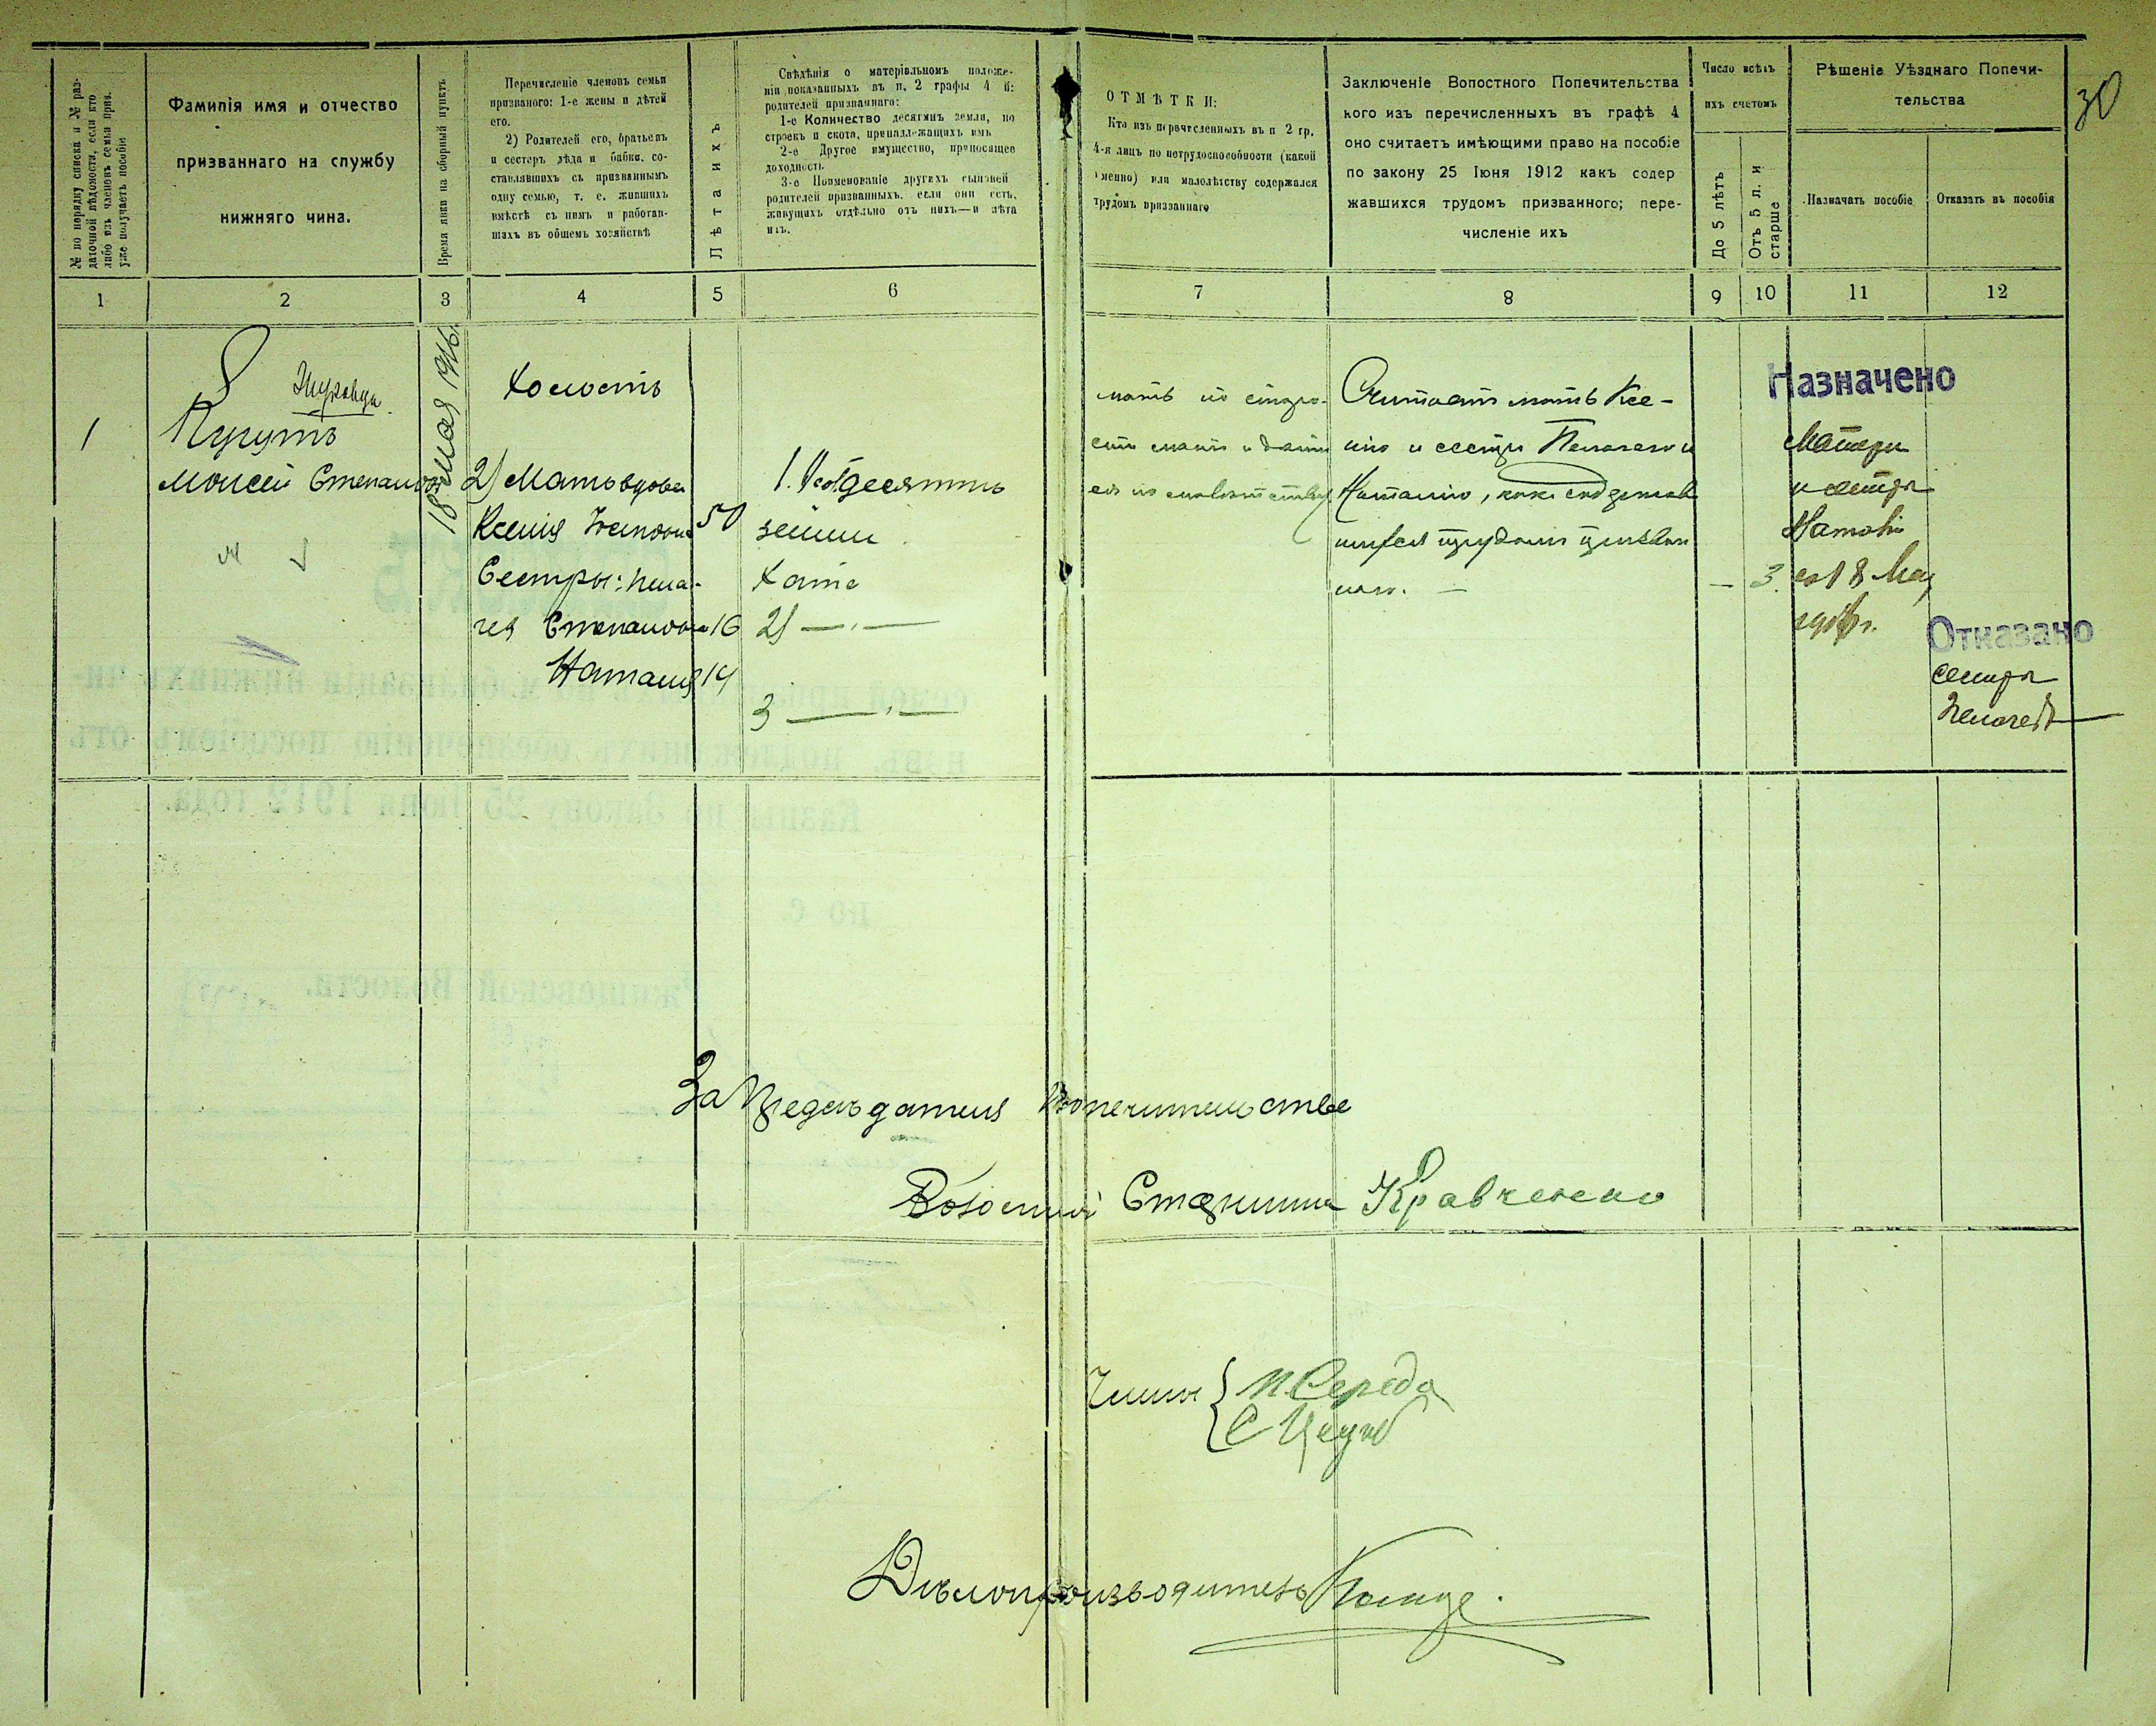 30
№ по порядку списка и № раз-
даточной вѣдомости, если кто
либо изъ членовъ семьи призв.
уже получаетъ пособіе
Фамилія имя и отчество
призваннаго на службу
нижняго чина.
Время явки на сборный пунктъ
Перечисленіе членовъ семьи
призваного: 1-е жены и дѣтей
его.
2) Родителей его, братьевъ
и сестеръ дѣда и бабки, со-
ставлявшихъ съ призваннымъ
одну семью, т. е. жившихъ
вмѣстѣ съ нимъ и работав-
шихъ въ общемъ хозяйствѣ
Лѣта ихъ
Свѣдѣнія о матеріальномъ положе-
ніи показанныхъ въ п. 2 графы 4 й:
родителей призваннаго:
1-е Количество десятинъ земли, по
строекъ и скота, принадлежащихъ имъ
2-е Другое имущество, приносящее
доходность
3-е Поименованіе другихъ сыновей
родителей призванныхъ, если они есть,
живущихъ отдѣльно отъ нихъ—и лѣта
ихъ.
ОТМѢТКИ:
Кто изъ перечисленныхъ въ п 2 гр.
4-я лицъ по нетрудоспособности (какой
именно) или малолѣтству содержался
трудомъ призваннаго
Заключеніе Волостного Попечительства
кого изъ перечисленныхъ въ графѣ 4
оно считаетъ имѣющими право на пособіе
по закону 25 Іюня 1912 какъ содер
жавшихся трудомъ призванного; пере-
численіе ихъ
Число всѣхъ
ихъ счетомъ
До 5 лѣтъ
Отъ 5 л. и
старше
Рѣшеніе Уѣзднаго Попечи-
тельства
Назначать пособіе
Отказать въ пособіи
1 2 3 4 5 6 7 8 9 10 11 12
1
Кугутъ
Моисей Степановъ
18 Мая 1916
Холостъ
2) Мать вдова
Ксенія Ивановна 50
Сестры: Пела-
гея Степановна 16
Наталія 14
десятинъ
земли
Хата
2) —"—
3 —"—
мать по старо-
сти
по малолѣтству
Считаетъ мать Ксе-
нію и сестры Пелагею и
Наталію, какъ содержав
шихся трудомъ призван
наго. —
— 3.
Назначено
Матери
и сестры
Наталіи
съ 18 Мая
1916 г.
Отказано
сестры
Пелагеи
За Предсѣдателя Попечительства
Волостной Старшина Кравченко
Члены { П Середа
С
Дѣлопроизводитель